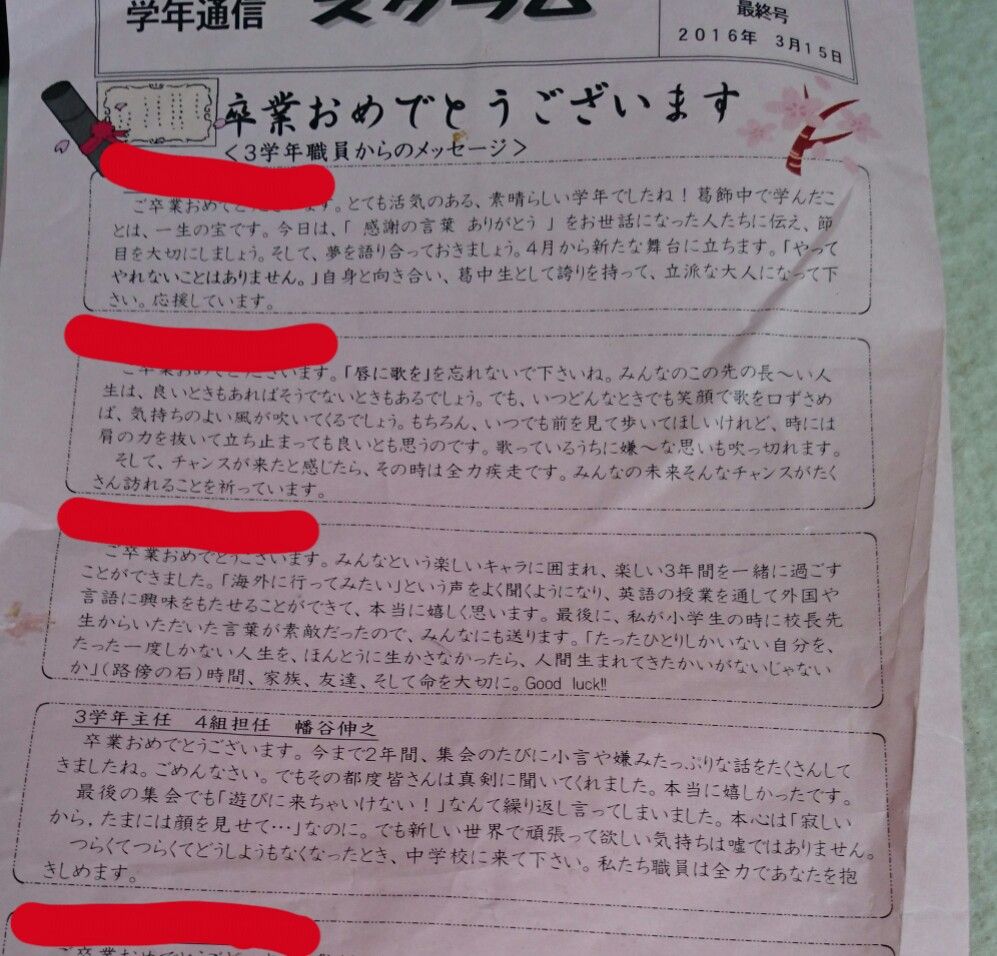 学年通信 スクラム
最終号
2016年 3月15日
卒業おめでとうございます
<3学年職員からのメッセージ>
ご卒業おめでとうございます。とても活気のある、素晴らしい学年でしたね!葛飾中で学んだこ
とは、一生の宝です。今日は、「 感謝の言葉 ありがとう 」をお世話になった人たちに伝え、節
目を大切にしましょう。そして、夢を語り合っておきましょう。4月から新たな舞台に立ちます。「やって
やれないことはありません。」自身と向き合い、葛中生として誇りを持って、立派な大人になって下
さい。応援しています。
ご卒業おめでとうございます。「唇に歌を」を忘れないで下さいね。みんなのこの先の長~い人
生は、良いときもあればそうでないときもあるでしょう。でも、いつどんなときでも笑顔で歌を口ずさめ
ば、気持ちのよい風が吹いてくるでしょう。もちろん、いつでも前を見て歩いてほしいけれど、時には
肩の力を抜いて立ち止まっても良いとも思うのです。歌っているうちに嫌~な思いも吹っ切れます。
そして、チャンスが来たと感じたら、その時は全力疾走です。みんなの未来そんなチャンスがたく
さん訪れることを祈っています。
ご卒業おめでとうございます。みんなという楽しいキャラに囲まれ、楽しい3年間を一緒に過ごす
ことができました。「海外に行ってみたい」という声をよく聞くようになり、英語の授業を通して外国や
言語に興味をもたせることができて、本当に嬉しく思います。最後に、私が小学生の時に校長先
生からいただいた言葉が素敵だったので、みんなにも送ります。「たったひとりしかいない自分を、
たった一度しかない人生を、ほんとうに生かさなかったら、人間生まれてきたかいがないじゃない
か」(路傍の石)時間、家族、友達、そして命を大切に。Good luck!!
3学年主任 4組担任 幡谷伸之
卒業おめでとうございます。今まで2年間、集会のたびに小言や嫌みたっぷりな話をたくさんして
きましたね。ごめんなさい。でもその都度皆さんは真剣に聞いてくれました。本当に嬉しかったです。
最後の集会でも「遊びに来ちゃいけない!」なんて繰り返し言ってしまいました。本心は「寂しい
から,たまには顔を見せて…」なのに。でも新しい世界で頑張って欲しい気持ちは嘘ではありません。
つらくてつらくてどうしようもなくなったとき、中学校に来て下さい。私たち職員は全力であなたを抱
きしめます。